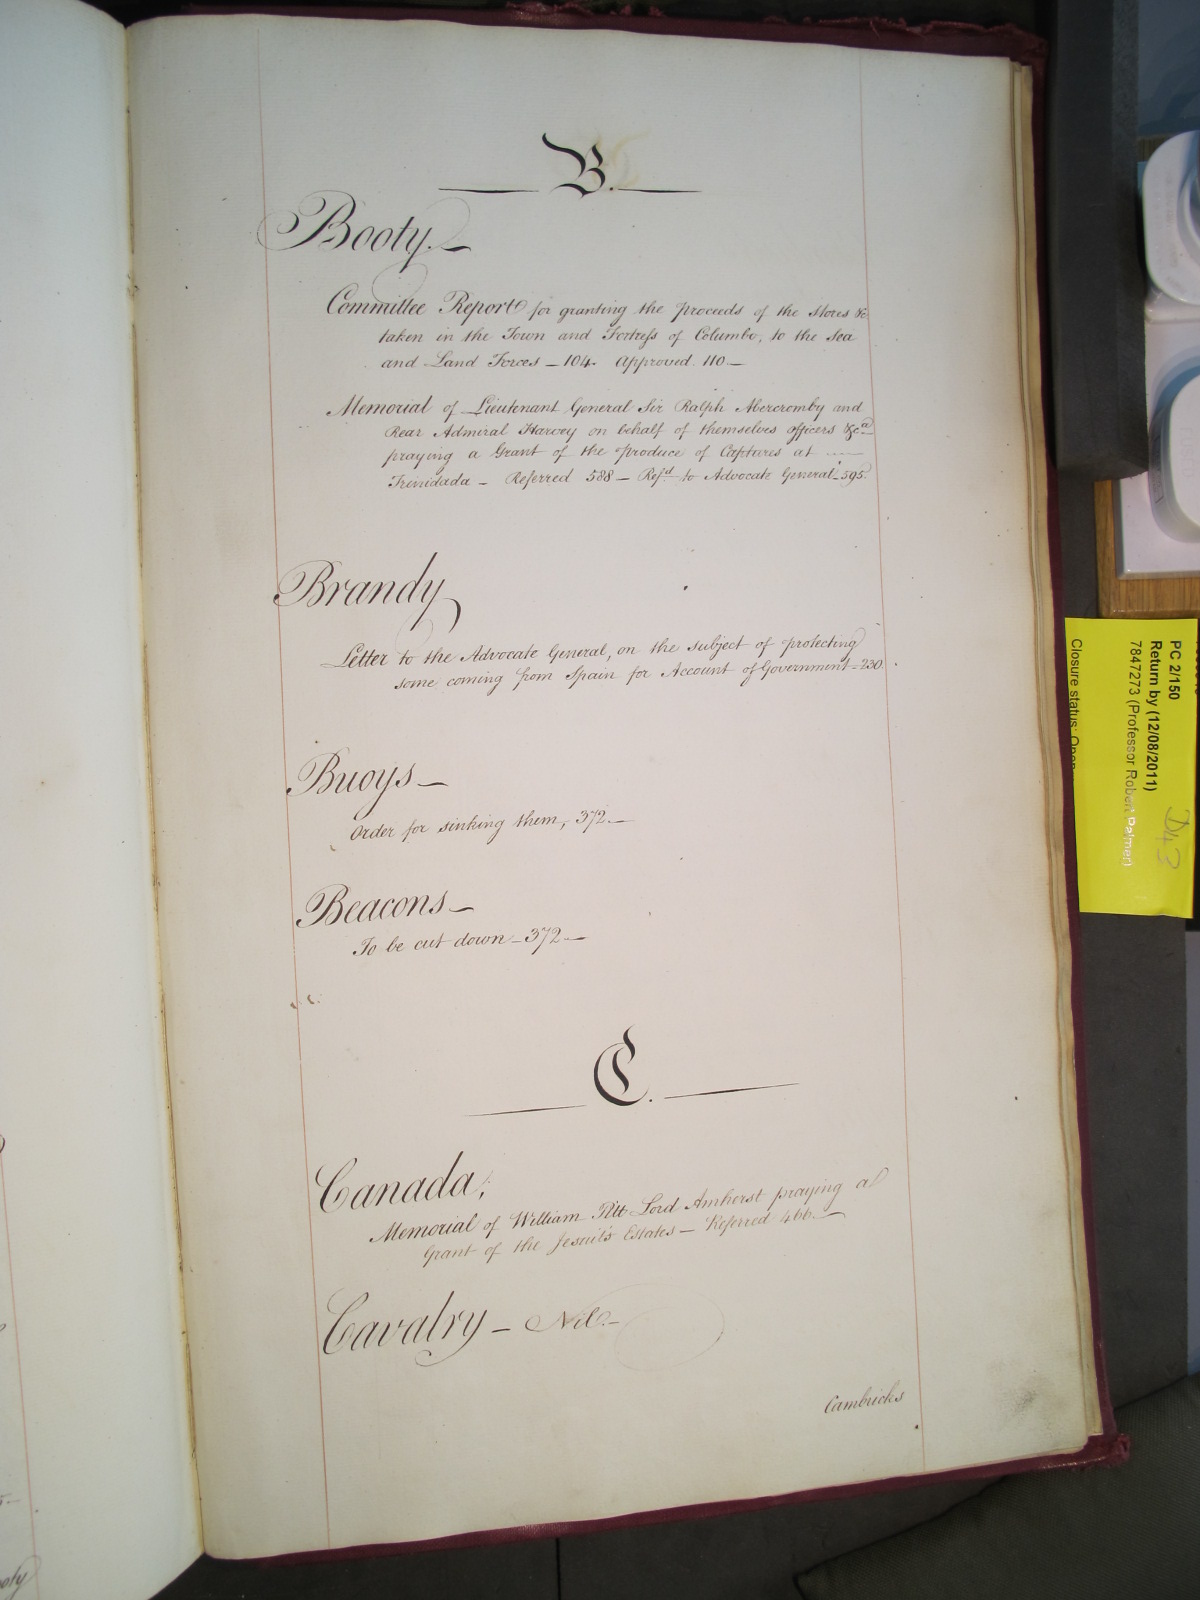 B.
Booty.
Committee Report for granting the proceeds of the Stores &c
taken in the Town and Fortress of Columbo, to the Sea
and Land Forces - 104. Approved. 110 -
Memorial of Lieutenant General Sir Ralph Abercromby and
Rear Admiral Harvey on behalf of themselves officers &ca
praying a Grant of the produce of Captures at
Trinidada - Referred 588 - Refd to Advocate General - 595.
Brandy
Letter to the Advocate General, on the subject of protecting
some coming from Spain for Account of Government - 230.
Buoys -
Order for sinking them, 372. -
Beacons -
To be cut down - 372 -
C.
Canada;
Memorial of William Pitt Lord Amherst praying a
Grant of the Jesuit's Estates - Referred 466. -
Cavalry - Nil. -
Cambricks
PC 2/150
Return by (12/08/2011)
7847273 (Professor Robert Palmer)
Closure status: Open
D43